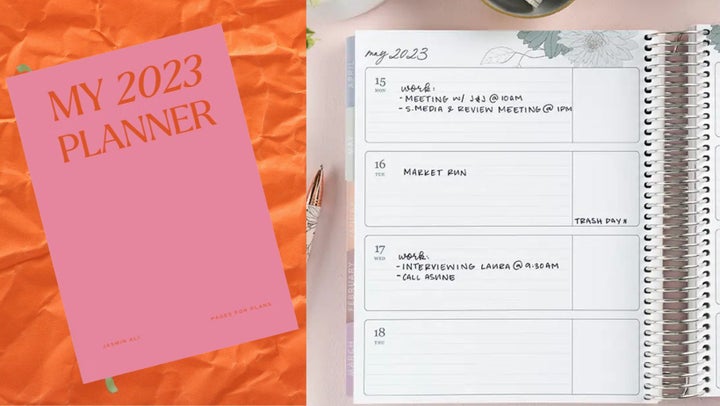 MY 2023
PLANNER
JASMIN ALI
PAGES FOR PLANS
may 2023
15
MON
work:
- MEETING W/ J&J @ 10AM
- S.MEDIA & REVIEW MEETING @ 1PM
16
TUE
MARKET RUN
TRASH DAY
17
WED
work:
- INTERVIEWING LAURA @ 9:30AM
- CALL
18
THU
APRIL
FEBRUARY
MARCH